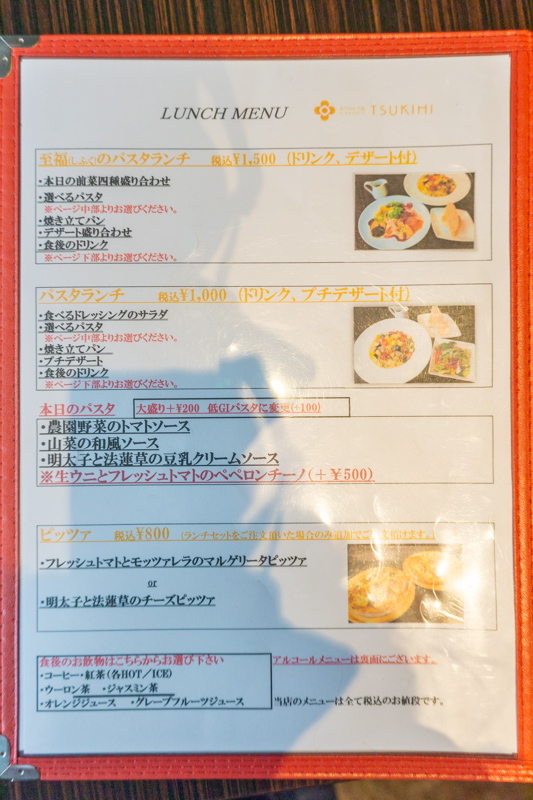 LUNCH MENU
TSUKIHI
至福(しふく)のパスタランチ 税込¥1,500 (ドリンク、デザート付)
・本日の前菜四種盛り合わせ
・選べるパスタ
※ページ中部よりお選びください。
・焼き立てパン
・デザート盛り合わせ
・食後のドリンク
※ページ下部よりお選びください。
パスタランチ 税込¥1,000 (ドリンク、プチデザート付)
・食べるドレッシングのサラダ
・選べるパスタ
※ページ中部よりお選びください。
・焼き立てパン
・プチデザート
・食後のドリンク
※ページ下部よりお選びください。
本日のパスタ 大盛り+¥200 低GIパスタに変更(+100)
・農園野菜のトマトソース
・山菜の和風ソース
・明太子と法蓮草の豆乳クリームソース
※生ウニとフレッシュトマトのペペロンチーノ(+¥500)
ピッツァ 税込¥800 (ランチセットをご注文頂いた場合のみ追加でご注文頂けます。)
・フレッシュトマトとモッツァレラのマルゲリータピッツァ
or
・明太子と法蓮草のチーズピッツァ
食後のお飲物はこちらからお選び下さい
・コーヒー・紅茶(各HOT/ICE)
・ウーロン茶 ・ジャスミン茶
・オレンジジュース ・グレープフルーツジュース
アルコールメニューは裏面にございます。
当店のメニューは全て税込のお値段です。